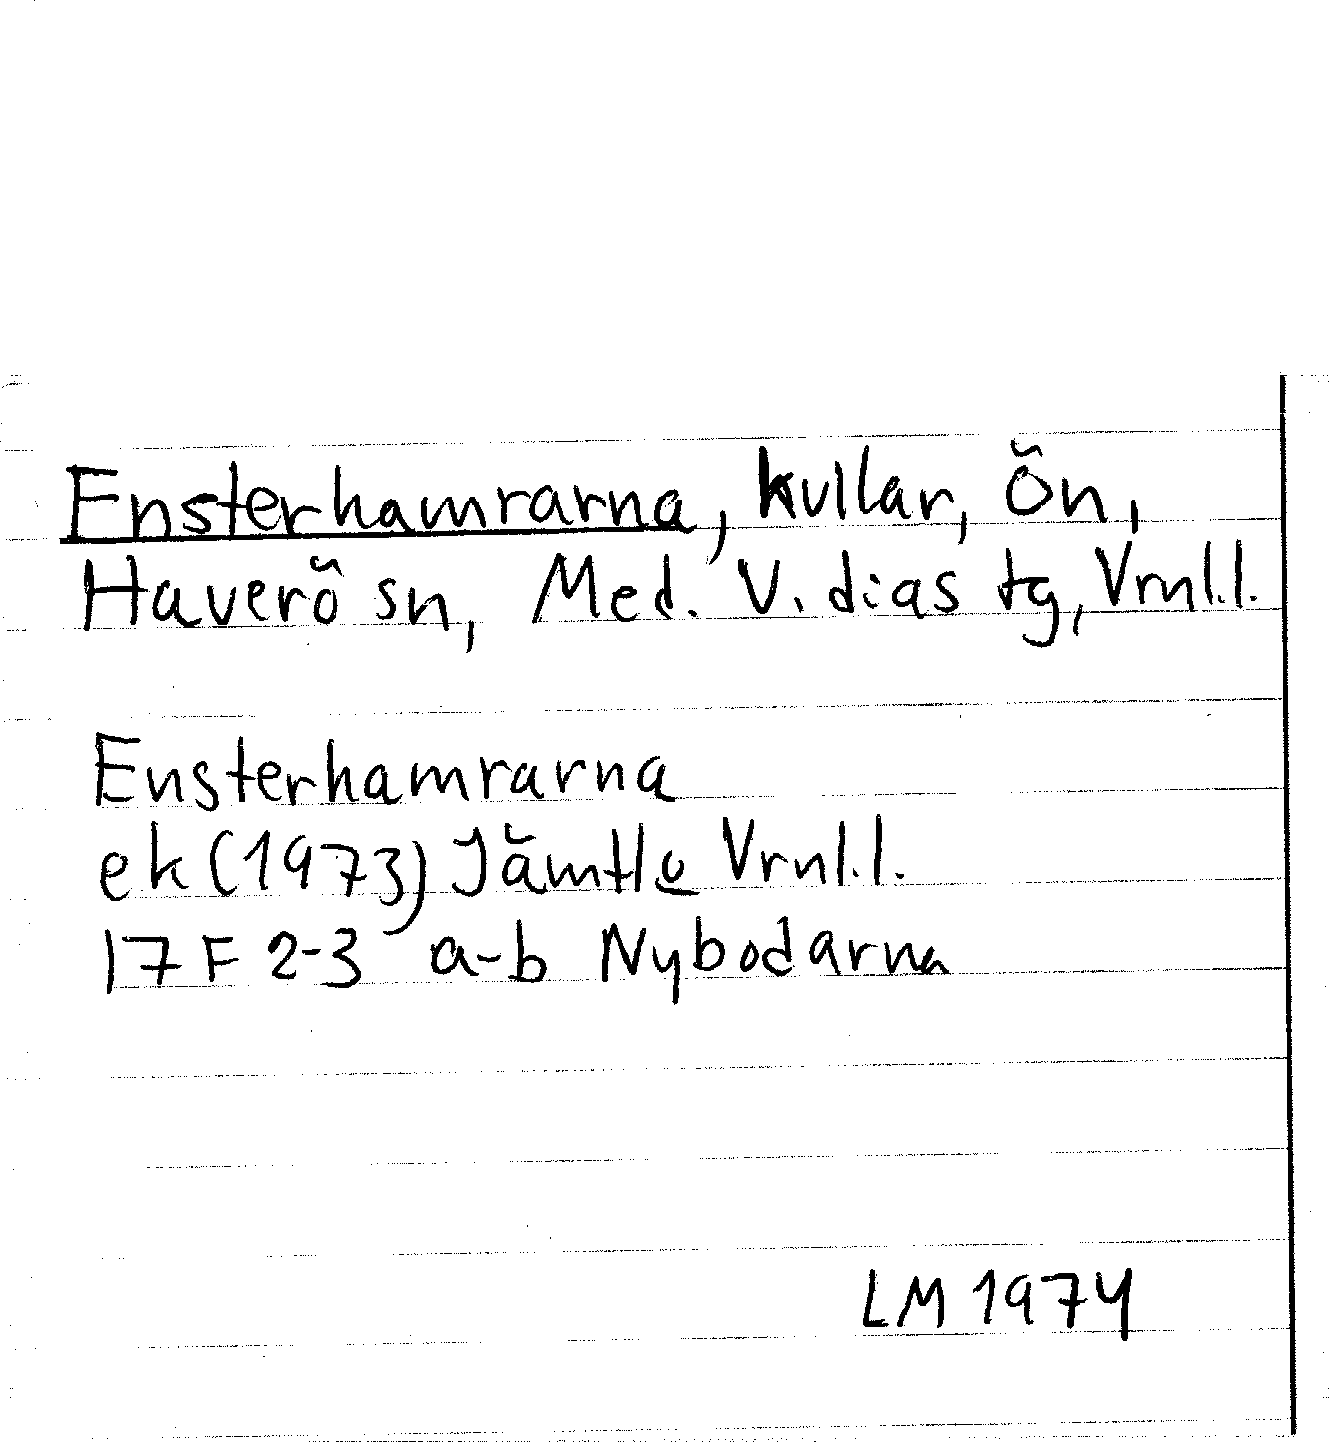 Ensterhamrarna, kullar, Ön,
Haverö sn, Med. V. dias tg, Vrnl.l.
Ensterhamrarna
ek (1973) Jämtlo Vrnl.l.
17 F 2-3 a-b Nybodarna
LM 1974